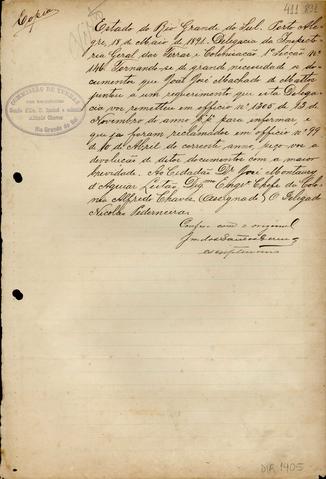 Copia
411 832
Estado do Rio Grande do Sul. Porto Ale-
gre, 18 de Maio de 1891. Delegacia da Inspecto-
ria Geral das Terras e Colonisação 1ª Secção Nº
146. Tornando-se de grande necessidade o do-
cumento que José José Machado de Mattos
juntou a um requerimento que esta Delega-
cia vos remetteu em officio nº 1305 de 13 de
Novembro do anno pp. para informar, e
que já foram reclamados em officio nº 99
de 10 de Abril do corrente anno, peço vos a
devolução de ditos documentos com a maior
brevidade. Ao Cidadão Dr José Montaury
d'Aguiar Leitão, Dig.mo Engº Chefe da Colo-
nia Alfredo Chaves (Assignado) O Delegado
Nicolão Pederneira.
Confere com o original
COMMISSÃO DE TERRAS
Alfredo Chaves
Rio Grande do Sul
DIA 1405